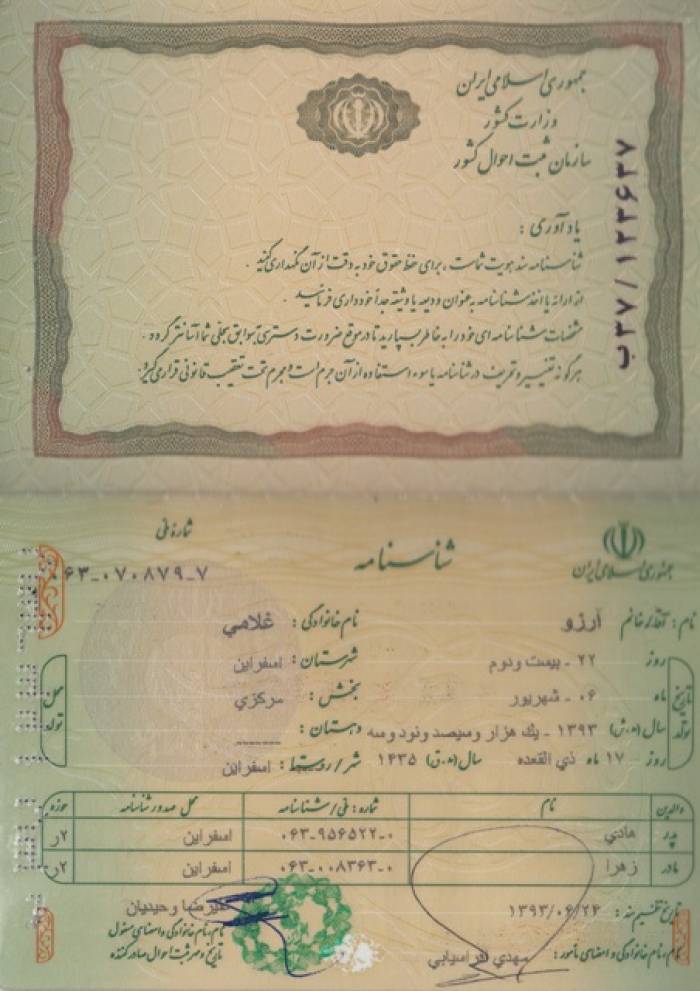 جمهوری اسلامی ایران
وزارت کشور
سازمان ثبت احوال کشور
ب۳۷/۱۲۳۶۳۷
یادآوری :
شناسنامه سند هویت شماست ، برای حفظ حقوق خود به دقت از آن نگهداری کنید .
از ارائه یا اخذ شناسنامه به عنوان ودیعه یا وثیقه جداً خودداری فرمائید .
مشخصات شناسنامه ای خود را به خاطر بسپارید تا در موقع ضرورت دسترسی به سوابق سجلی شما آسانتر گردد .
هرگونه تغییر و تحریف در شناسنامه یا سوء استفاده از آن جرم است و مجرم تحت تعقیب قانونی قرار می گیرد .
جمهوری اسلامی ایران
شناسنامه
شماره ملی
۰۶۳-۰۷۰۸۷۹-۷
نام : آقا/خانم آرزو نام خانوادگی : غلامي
تاریخ تولد
روز ۲۲ - بيست ودوم شهرستان : اسفراين
ماه ۰۶ - شهريور بخش : مركزي
سال (ه.ش) ۱۳۹۳ - يك هزار وسيصد ونود وسه دهستان : ------
روز ۱۷ ماه ذي القعده سال (ه.ق) ۱۴۳۵ شهر/روستا : اسفراين
محل تولد
والدین نام شماره : ملی / شناسنامه محل صدور شناسنامه حوزه
پدر هادي ۰۶۳-۹۵۶۵۲۲-۰ اسفراين ۲ر
مادر زهرا ۰۶۳-۰۰۸۳۶۳-۰ اسفراين ۲ر
تاریخ تنظیم سند : ۱۳۹۳/۰۶/۲۴ عليرضا وحيديان
نام، نام خانوادگی و امضای مسئول
نام، نام خانوادگی و امضای مأمور : مهدي افراسيابي
تاریخ و مهر ثبت احوال صادر کننده